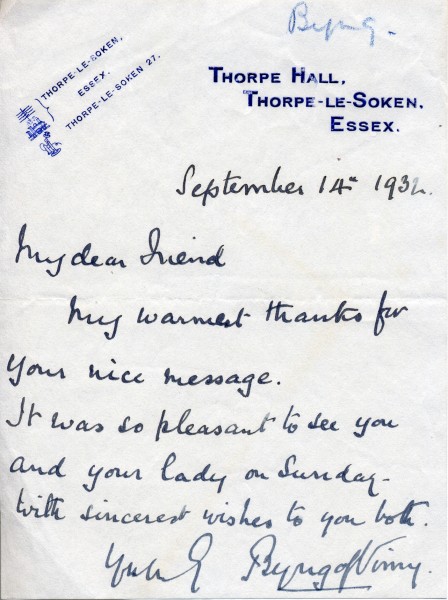 Byng.
THORPE-LE-SOKEN,
ESSEX.
THORPE-LE-SOKEN 27.
THORPE HALL,
THORPE-LE-SOKEN,
ESSEX.
September 14th 1932.
My dear Friend
My warmest thanks for
your nice message.
It was so pleasant to see you
and your lady on Sunday-
With sincerest wishes to you both.
Byng of Vimy.